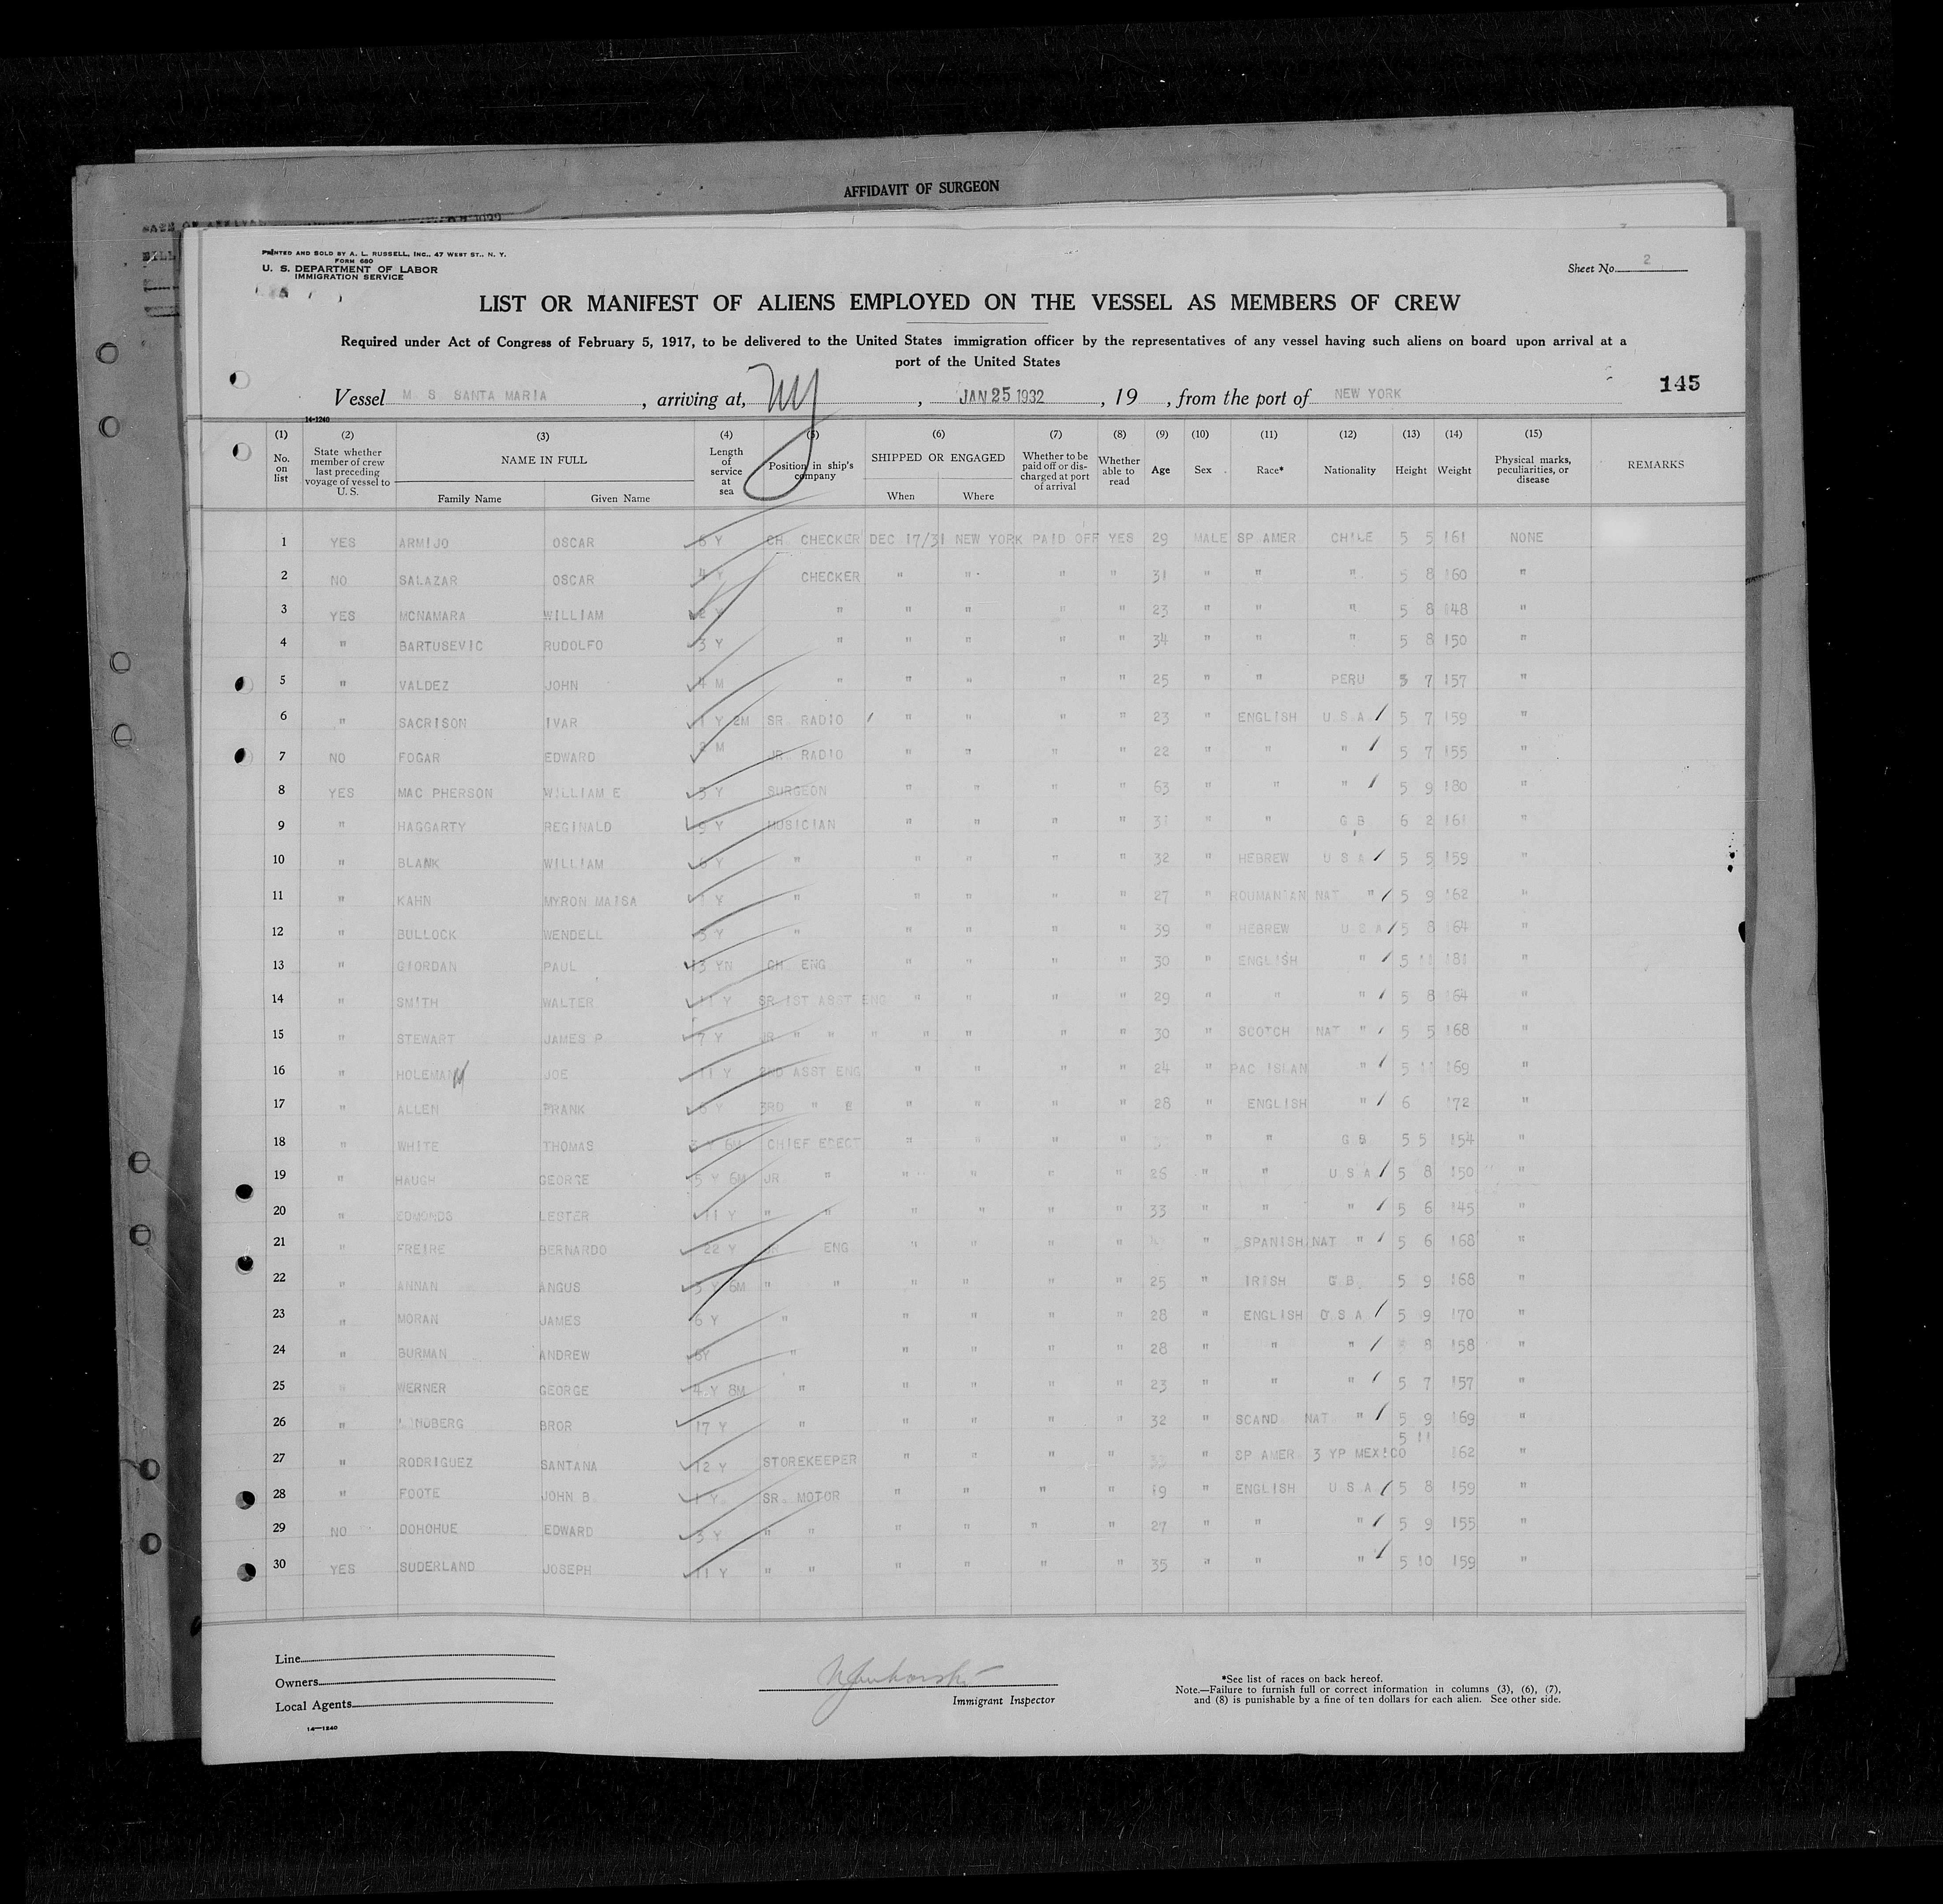 AFFIDAVIT OF SURGEON
PRINTED AND SOLD BY A. L. RUSSELL, INC., 47 WEST ST., N. Y.
FORM 680
U. S. DEPARTMENT OF LABOR
IMMIGRATION SERVICE
Sheet No. 2
LIST OR MANIFEST OF ALIENS EMPLOYED ON THE VESSEL AS MEMBERS OF CREW
Required under Act of Congress of February 5, 1917, to be delivered to the United States immigration officer by the representatives of any vessel having such aliens on board upon arrival at a
port of the United States
145
Vessel M. S. SANTA MARIA, arriving at, NY, JAN 25 1932, 19 , from the port of NEW YORK
14-1240
(1) No. on list (2) State whether member of crew last preceding voyage of vessel to U. S. (3) NAME IN FULL Family Name Given Name (4) Length of service at sea (5) Position in ship's company (6) SHIPPED OR ENGAGED When Where (7) Whether to be paid off or discharged at port of arrival (8) Whether able to read (9) Age (10) Sex (11) Race* (12) Nationality (13) Height (14) Weight (15) Physical marks, peculiarities, or disease REMARKS
1 YES ARMIJO OSCAR Y CH. CHECKER DEC 17/31 NEW YORK PAID OFF YES 29 MALE SP AMER CHILE 5 5 161 NONE
2 NO SALAZAR OSCAR 4 Y CHECKER " " " " 31 " " " 5 8 160 "
3 YES MCNAMARA WILLIAM 2 Y " " " " " 23 " " " 5 8 148 "
4 " BARTUSEVIC RUDOLFO 3 Y " " " " " 34 " " " 5 8 150 "
5 " VALDEZ JOHN 4 M " " " " " 25 " " PERU 5 7 157 "
6 " SACRISON IVAR 1 Y 2M SR. RADIO " " " " 23 " ENGLISH U.S.A. 5 7 159 "
7 NO FOGAR EDWARD 2 M JR. RADIO " " " " 22 " " " 5 7 155 "
8 YES MAC PHERSON WILLIAM E. 3 Y SURGEON " " " " 63 " " " 5 9 180 "
9 " HAGGARTY REGINALD 9 Y MUSICIAN " " " " 31 " " G B 6 2 161 "
10 " BLANK WILLIAM Y " " " " " 32 " HEBREW U S A 5 5 159 "
11 " KAHN MYRON MAISA Y " " " " " 27 " ROUMANIAN NAT " 5 9 162 "
12 " BULLOCK WENDELL 3 Y " " " " " 39 " HEBREW U S A 5 8 164 "
13 " GIORDAN PAUL 13 YN CH. ENG " " " " 30 " ENGLISH " 5 11 181 "
14 " SMITH WALTER 11 Y SR 1ST ASST ENG " " " " 29 " " " 5 8 164 "
15 " STEWART JAMES P. 7 Y JR " " " " " " " 30 " SCOTCH NAT " 5 5 168 "
16 " HOLEMAN JOE 11 Y 2ND ASST ENG " " " " 24 " PAC ISLAN " 5 11 169 "
17 " ALLEN FRANK Y 3RD " E " " " " 28 " ENGLISH " 6 172 "
18 " WHITE THOMAS Y 6M CHIEF EBECT " " " " " " G B 5 5 154 "
19 " HAUGH GEORGE 5 Y 6M JR. " " " " " 26 " " U S A 5 8 150 "
20 " EDMONDS LESTER 11 Y " " " " " " 33 " " " 5 6 145 "
21 " FREIRE BERNARDO 22 Y ENG " " " " " SPANISH NAT " 5 6 168 "
22 " ANNAN ANGUS 3 Y 6M " " " " " " 25 " IRISH G B. 5 9 168 "
23 " MORAN JAMES 6 Y " " " " " 28 " ENGLISH U S A 5 9 170 "
24 " BURMAN ANDREW 6Y " " " " " 28 " " " 8 158 "
25 " WERNER GEORGE 4 Y 8M " " " " " 23 " " " 5 7 157 "
26 " LINDBERG BROR 17 Y " " " " " 32 " SCAND NAT " 5 9 169 "
27 " RODRIGUEZ SANTANA 12 Y STOREKEEPER " " " " " SP AMER 3 YP MEXICO 5 11 162 "
28 " FOOTE JOHN B. 1 Y. SR. MOTOR " " " " 19 " ENGLISH U S A 5 8 159 "
29 NO DOHOHUE EDWARD 3 Y " " " " " " 27 " " " 5 9 155 "
30 YES SUDERLAND JOSEPH 11 Y " " " " " " 35 " " " 5 10 159 "
Line
Owners
Local Agents
14-1240
Immigrant Inspector
*See list of races on back hereof.
Note.—Failure to furnish full or correct information in columns (3), (6), (7),
and (8) is punishable by a fine of ten dollars for each alien. See other side.